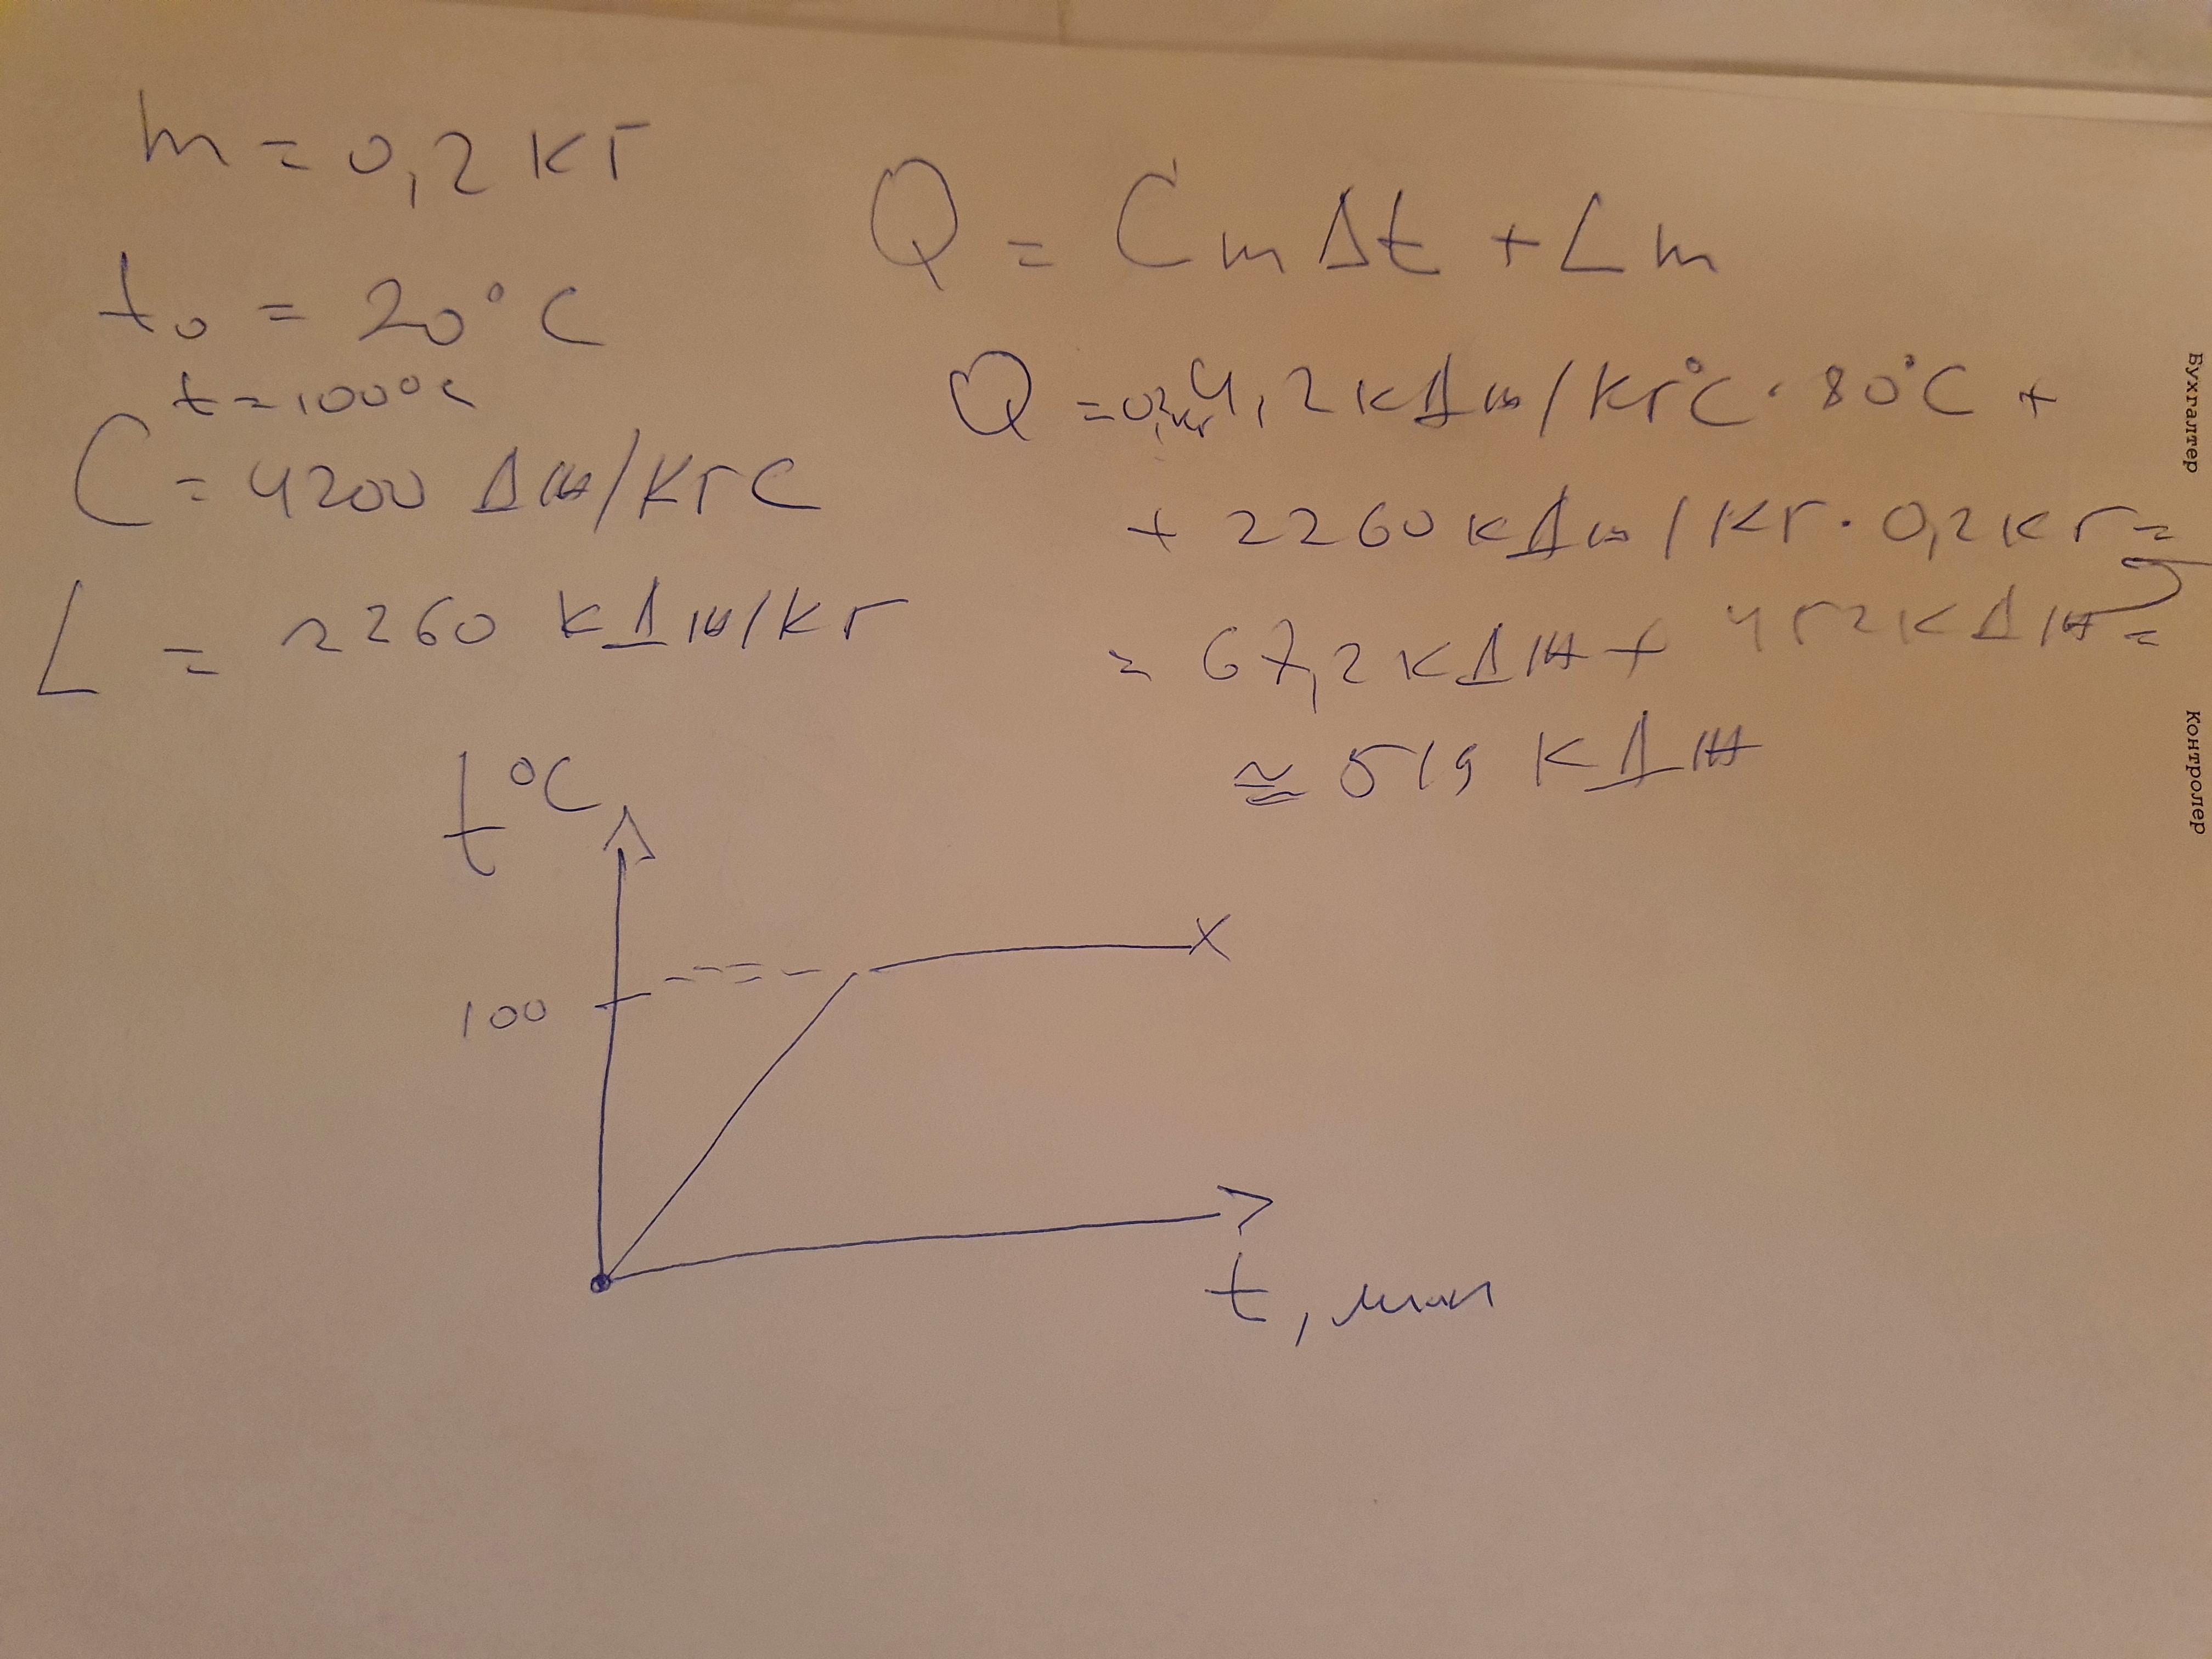 m = 0,2 кг
t₀ = 20°C
t = 100°C
C = 4200 Дж/кгС
L = 2260 кДж/кг
Q = CmΔt + Lm
Q = 0,2кг 4,2 кДж/кг°C · 80°C +
+ 2260 кДж/кг · 0,2 кг =
= 67,2 кДж + 452 кДж =
≅ 519 кДж
t °C
100
x
t, мин
Бухгалтер
Контролер